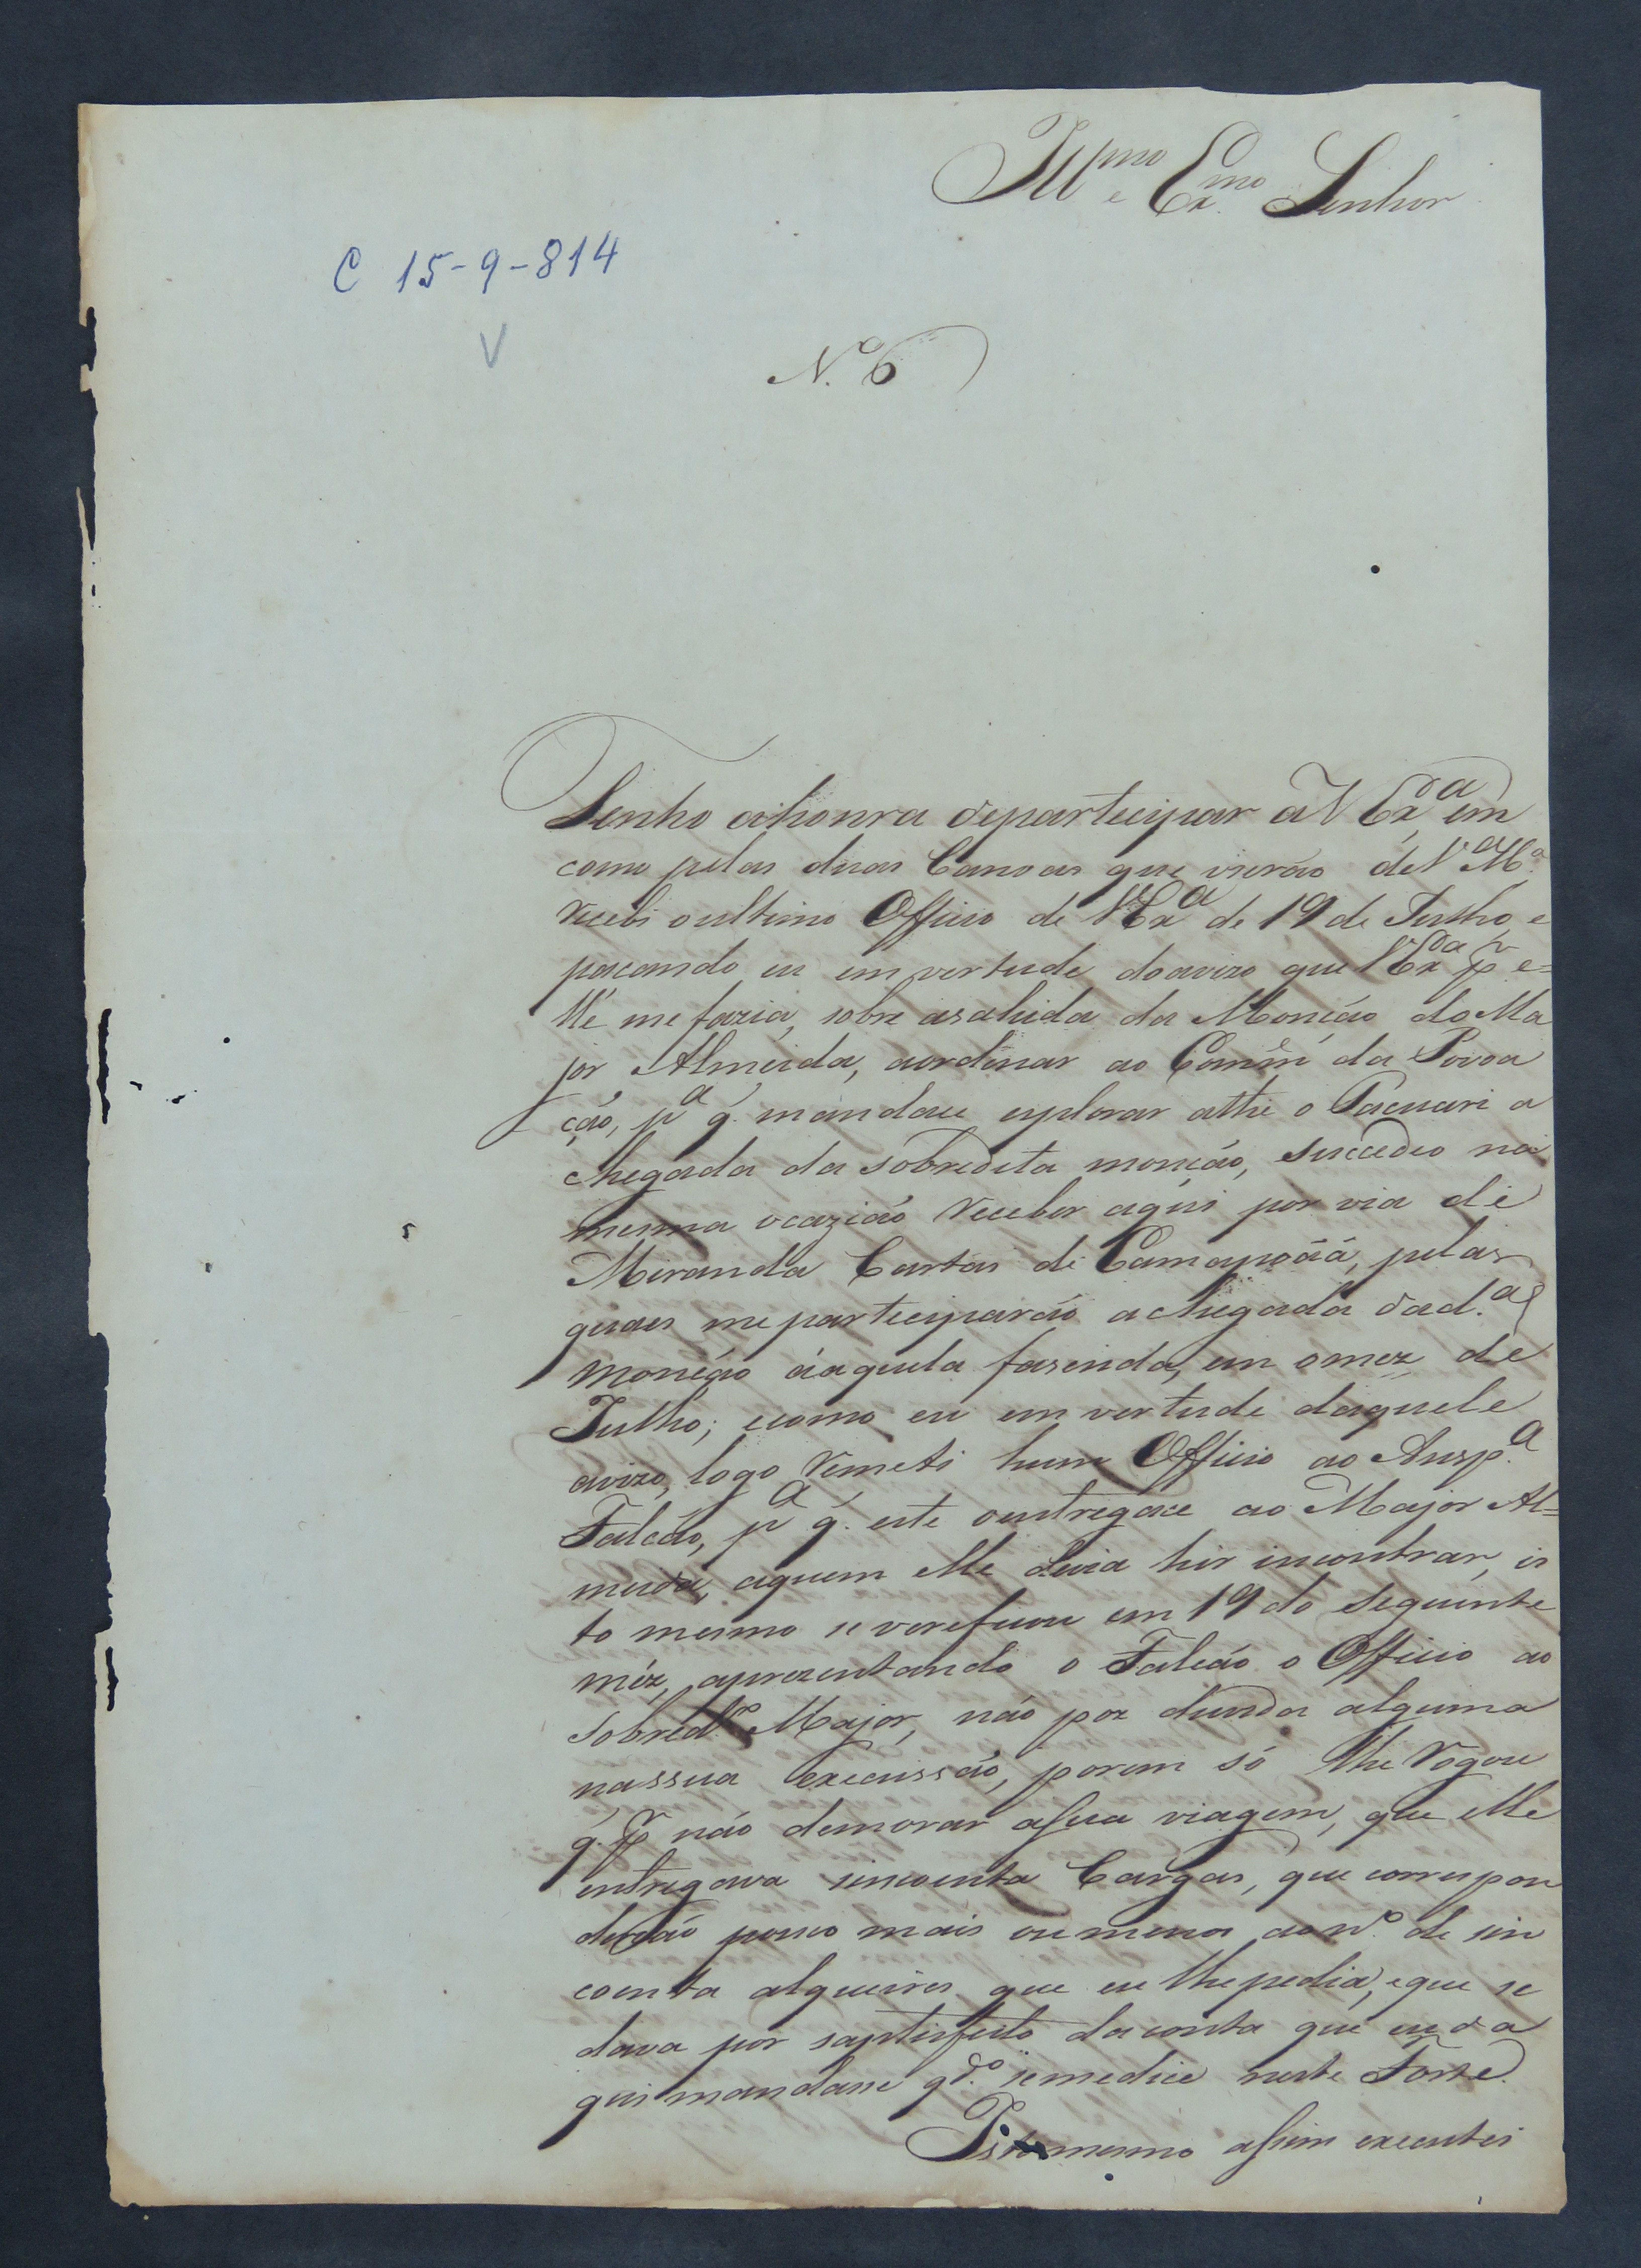 Illmo e Exmo Senhor
C 15-9-814
V
N.º 6
Tenho ahonra departecipar aV Exa em
como pelas duas Canoas que vierão deV.a Ma.
recebi oultimo Officio de VExa de 19 de Julho, e
paçando eu em vertude doavizo que VExa pr e=
lle me fazia, sobre asahida da Monção do Ma
jor Almeida, aordenar ao Comm.e da Povoa
ção, pa q. mandace esplorar athe o Tacuari a
chegada da sobredita monção, succedeo na
mesma ocazião receber aqui por via de
Miranda Cartas de Camapoãã, pelas
quaes me participarão achegada dad.a
monção áaquela fasenda, em omez de
Julho; ecomo eu em vertude daquele
avizo, logo remeti hum Officio ao Ansp.a
Falcão, pa q. este oentregace ao Major Al=
meida, aquem elle devia hir incontrar, is
to mesmo se vereficou em 19 do seguinte
méz, aprezentando o Falcão o Officio ao
sobred.o Major, não poz duvida alguma
nassua execussão, porem só lhe rogou
q. pr não demorar asua viagem, que elle
entregava sincoenta Cargas, que correspon
derião pouco mais oumenos ao n.o de sin
coenta alqueires que eu lhepedia, eque se
dava por saptisfeito daconta que eu da
qui mandasse qdo. semedice neste Forte.
Isto mesmo asim executei